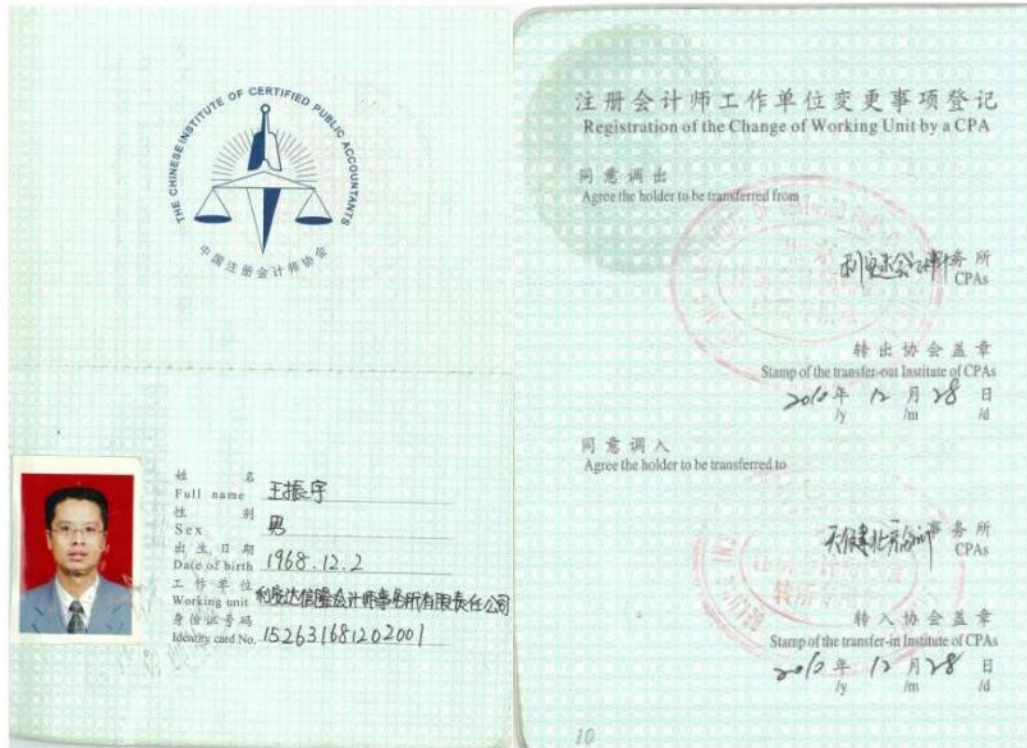 THE CHINESE INSTITUTE OF CERTIFIED PUBLIC ACCOUNTANTS
中国注册会计师协会
姓 名
Full name 王振宇
性 别
Sex 男
出生日期
Date of birth 1968.12.2
工作单位
Working unit 利安达信隆会计师事务所有限责任公司
身份证号码
Identity card No. 152631681202001
注册会计师工作单位变更事项登记
Registration of the Change of Working Unit by a CPA
同意调出
Agree the holder to be transferred from
利安达会计师事务所
CPAs
转出协会盖章
Stamp of the transfer-out Institute of CPAs
2010 年 12 月 28 日
/y /m /d
同意调入
Agree the holder to be transferred to
天健北京 事务所
CPAs
转入协会盖章
Stamp of the transfer-in Institute of CPAs
2010 年 12 月 28 日
/y /m /d
10